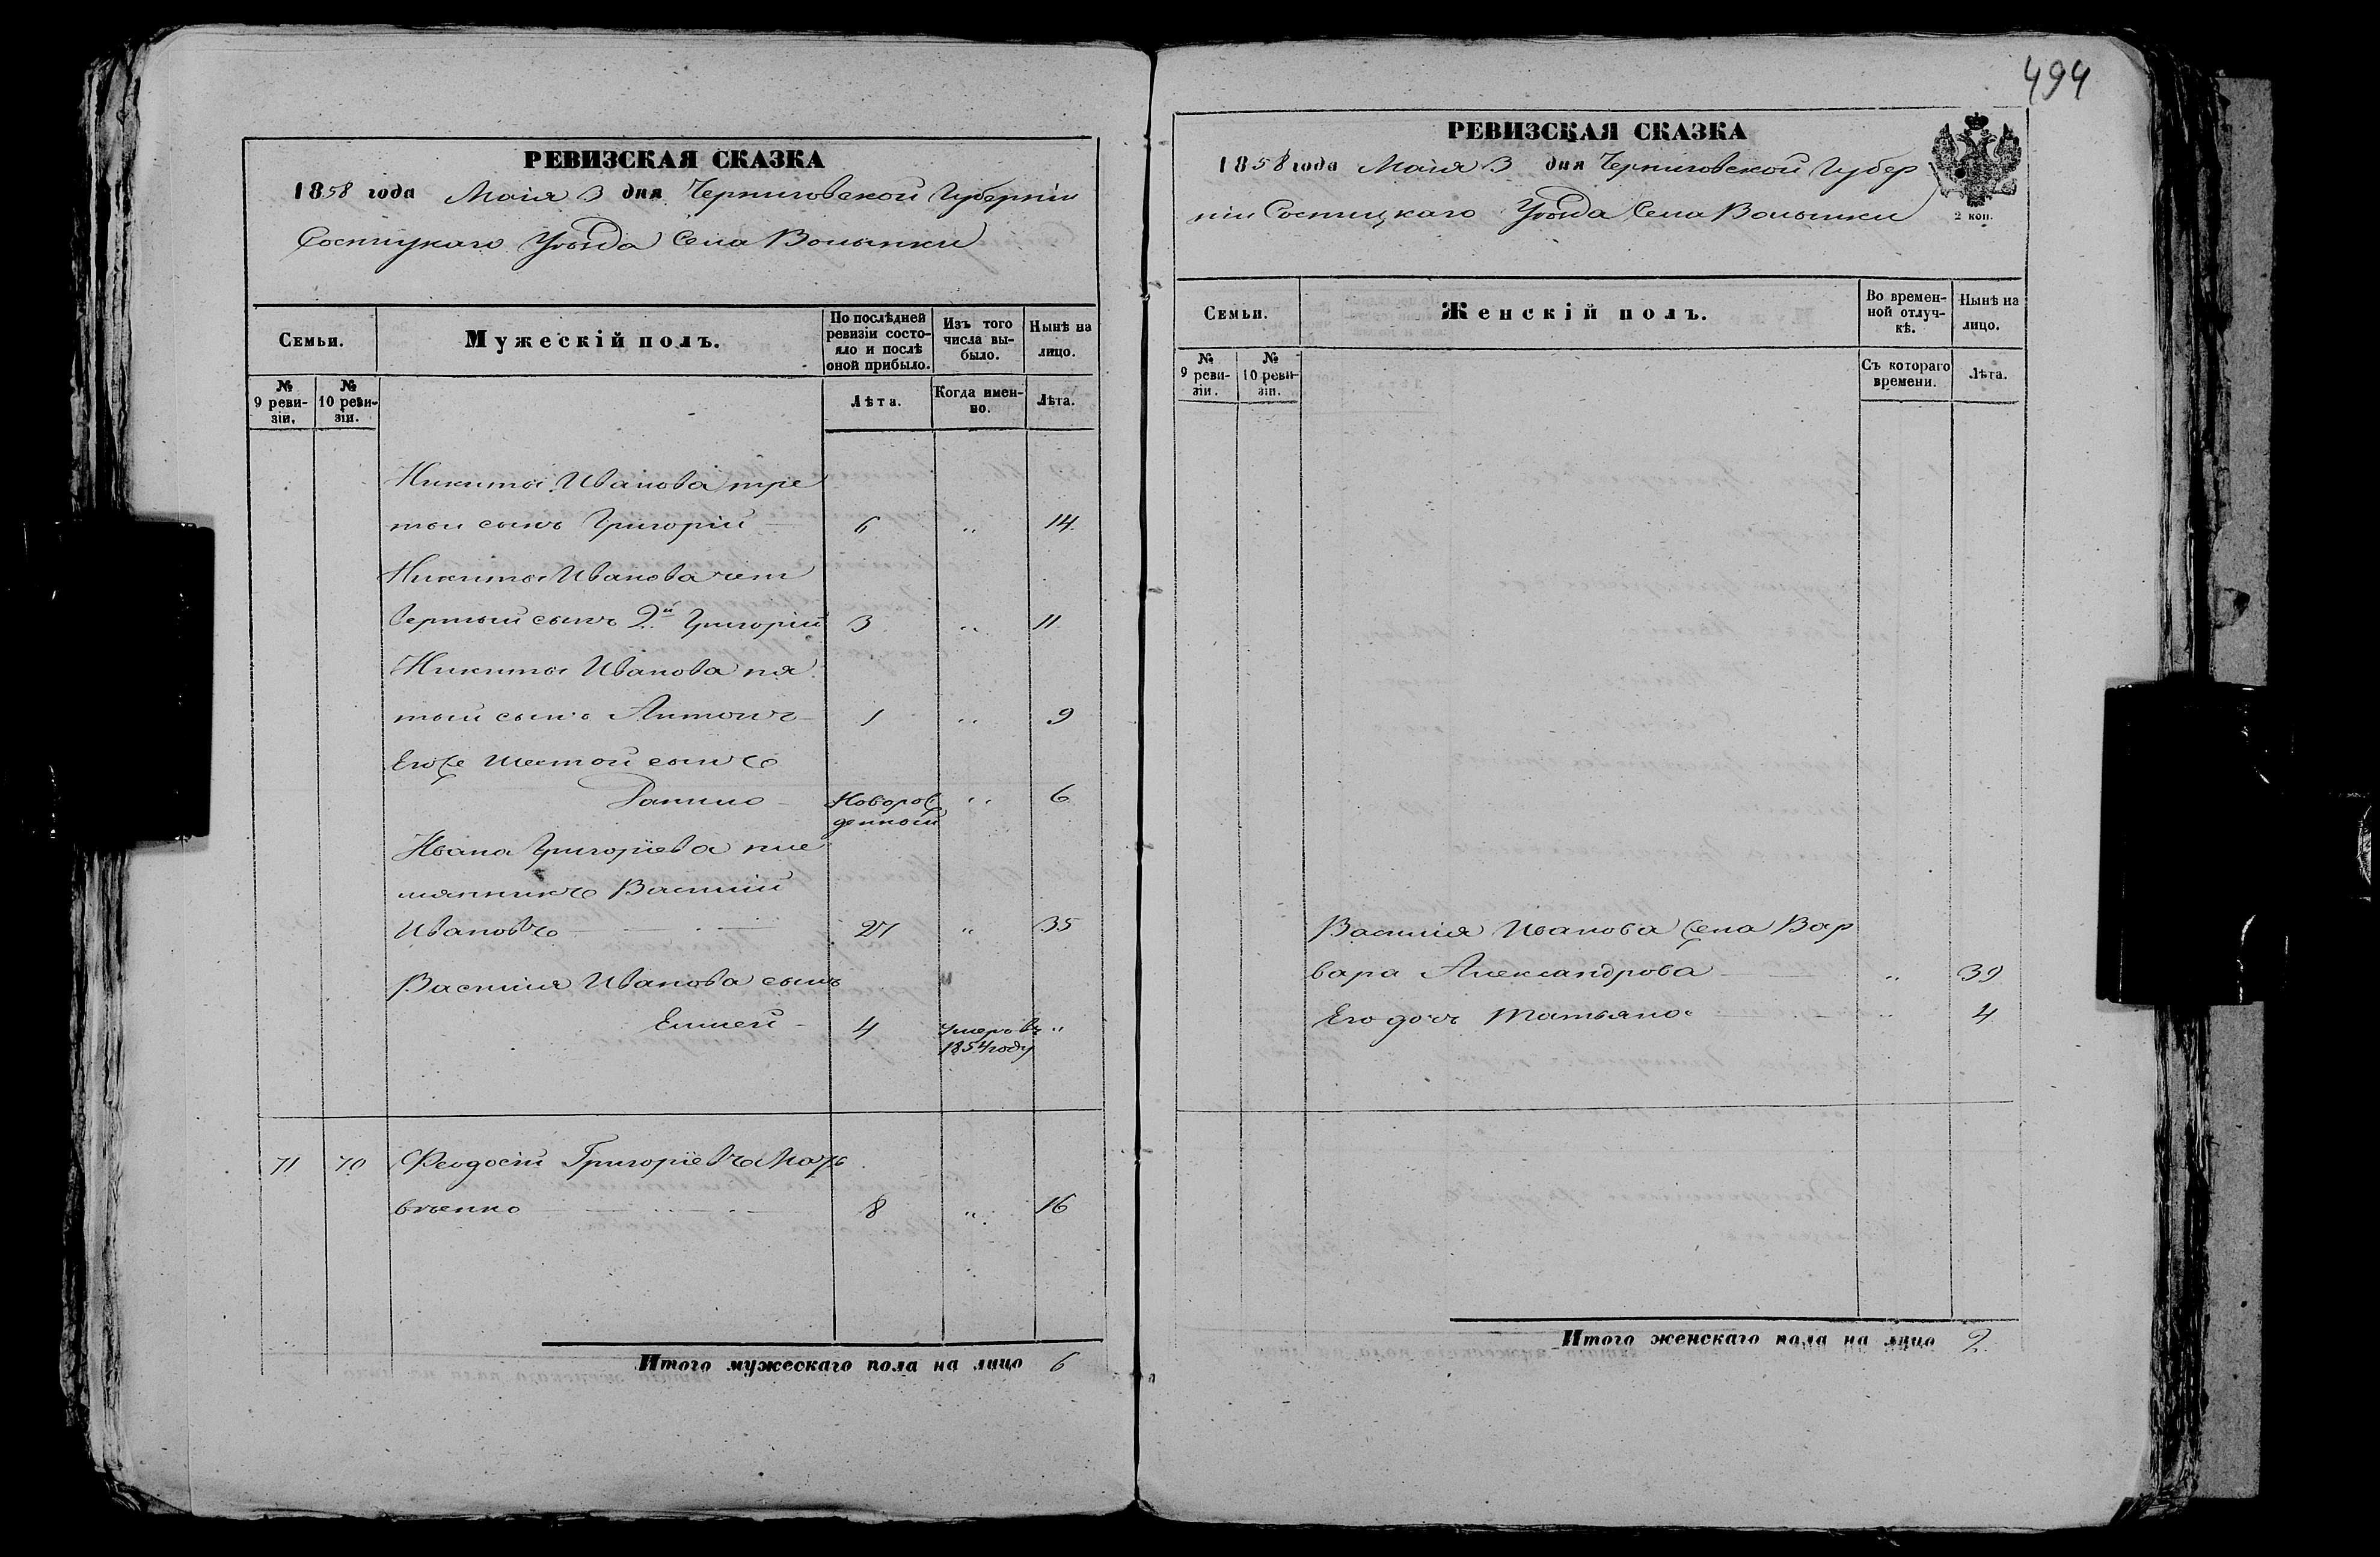 РЕВИЗСКАЯ СКАЗКА
1858 года Маія 3 дня Черниговской Губерніи
Сосницкаго Уѣзда Села Волынки
Семьи.
Мужескій полъ.
По послѣдней ревизіи состояло и послѣ оной прибыло.
Изъ того числа выбыло.
Нынѣ на лицо.
№ 9 ревизіи.
№ 10 ревизіи.
Лѣта.
Когда именно.
Лѣта.
Никиты Иванова тре
тои сынъ Григорій 6 „ 14
Никиты Иванова чет
вертый сынъ 2й Григорій 3 „ 11
Никиты Иванова пя
тый сынъ Антонъ 1 „ 9
Егоже шестой сынъ
Данило Новорож „ 6
денный
Ивана Григоріева пле
мянникъ Василій
Ивановъ 27 „ 35
Василія Иванова сынъ
Елисей 4 умеръ въ „
1854 году
71 70 Феодосій Григоріевъ
вченко 8 „ 16
Итого мужескаго пола на лицо 6
494
РЕВИЗСКАЯ СКАЗКА
1858 года Маія 3 дня Черниговской Губер
ніи Сосницкаго Уѣзда Села Волынки
2 коп.
Семьи.
Женскій полъ.
Во временной отлучкѣ.
Нынѣ на лицо.
№ 9 ревизіи.
№ 10 ревизіи.
Съ котораго времени.
Лѣта.
Василія Иванова жена Вар
вара Александрова „ 39
Его дочь Татьяна „ 4
Итого женскаго пола на лицо 2